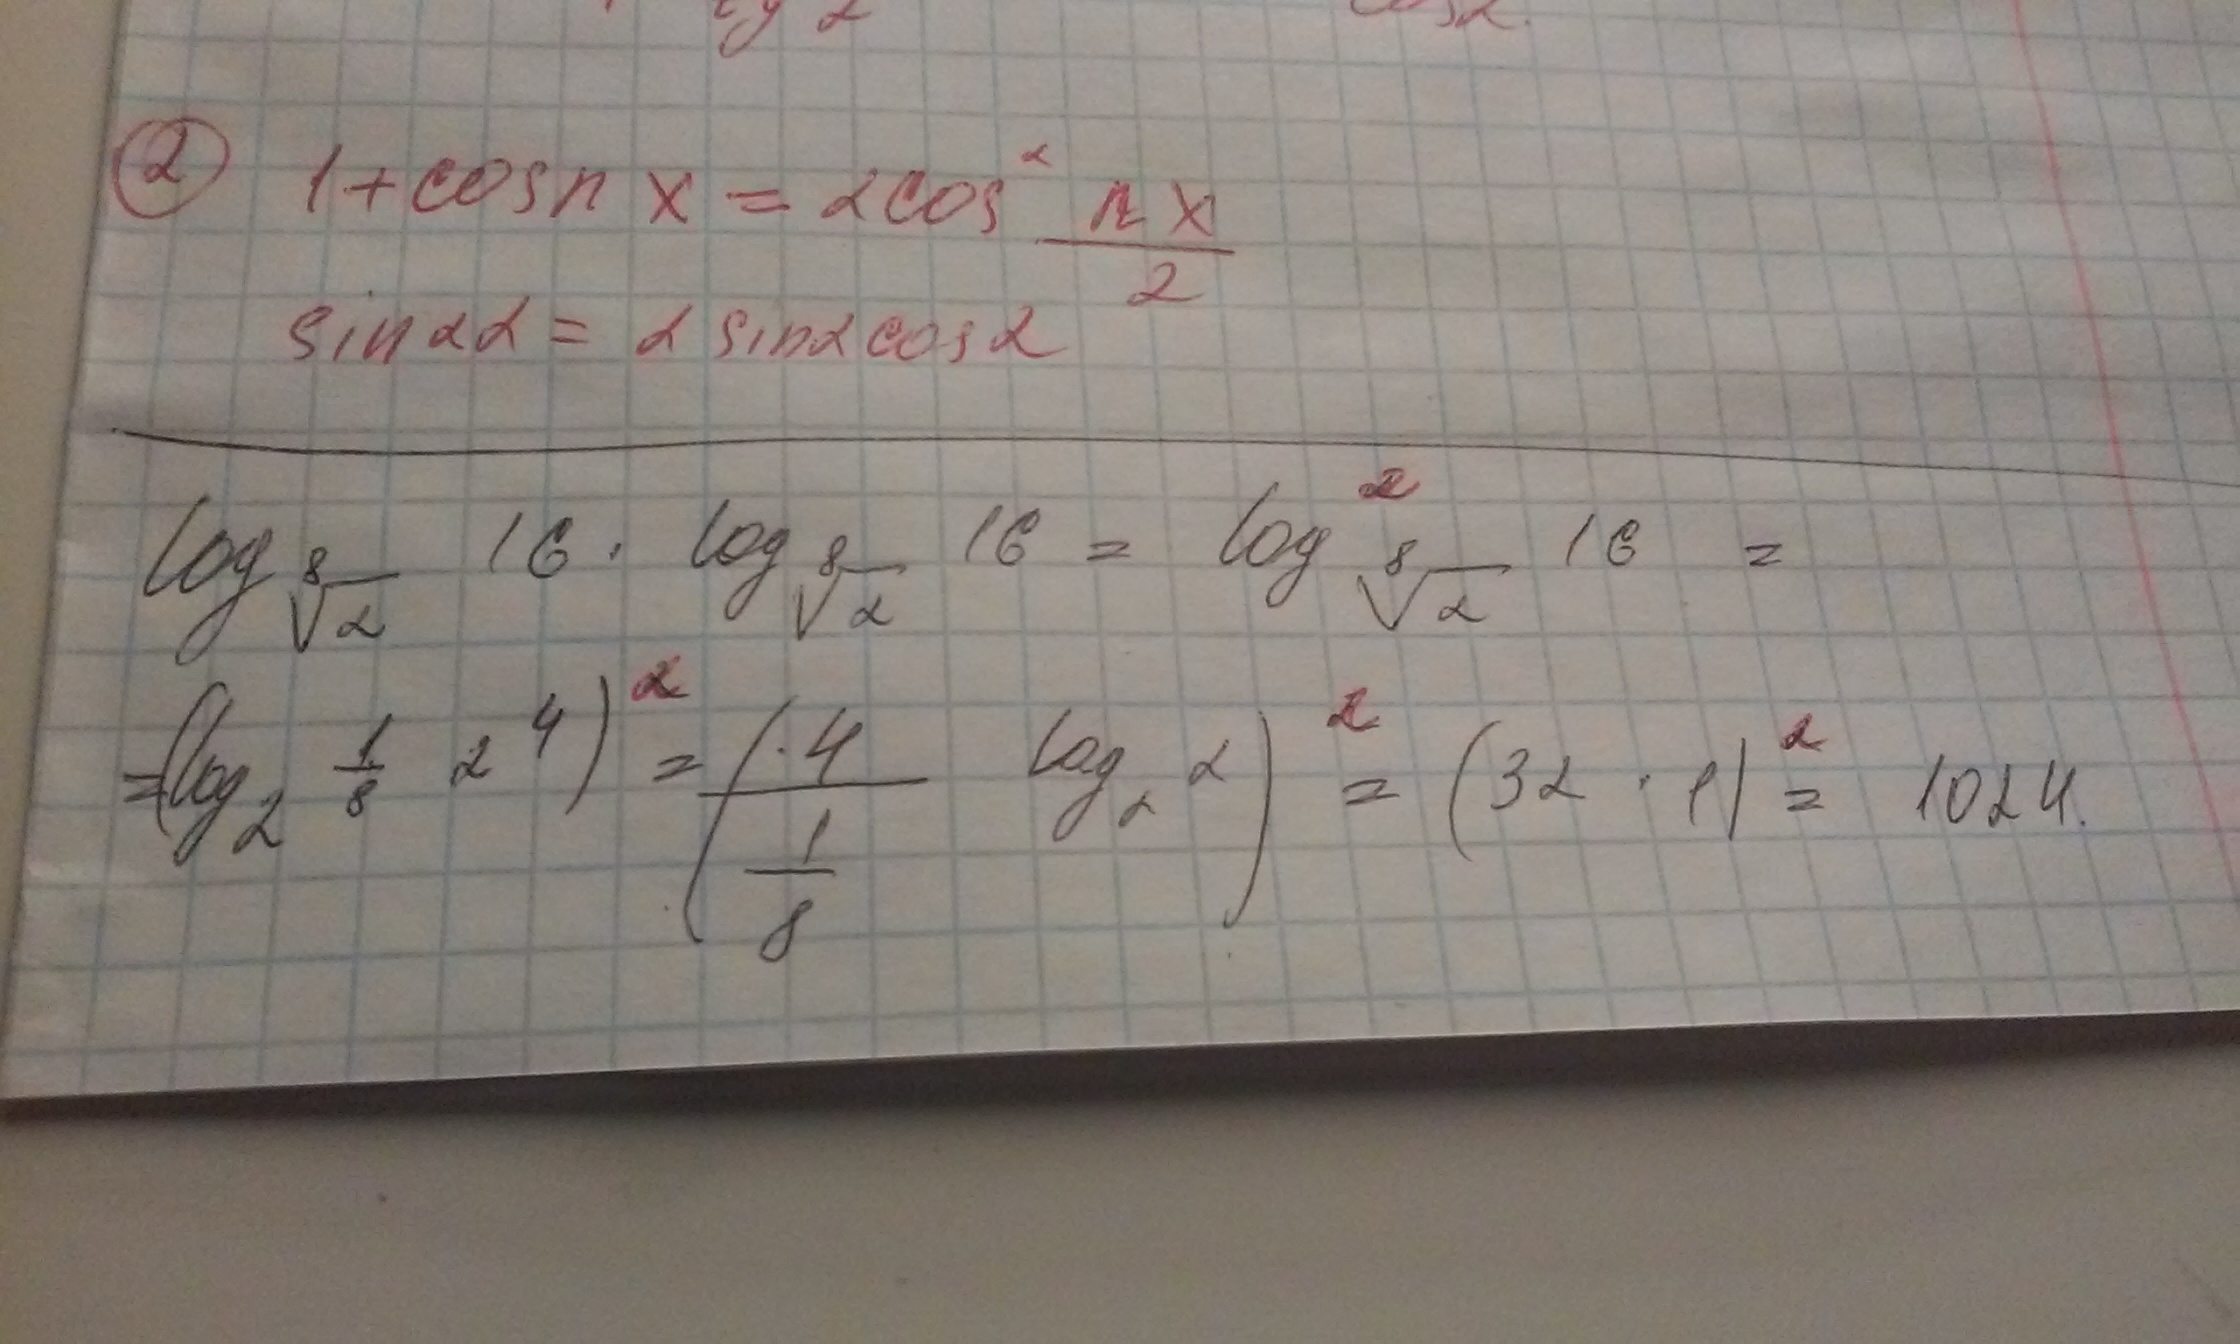 ② 1 + cos n x = 2 cos² nx/2
sin 2α = 2 sin α cos α
log_⁸√2 16 · log_⁸√2 16 = log²_⁸√2 16 =
= (log_2^(1/8) 2⁴)² = (4/(1/8) log₂ 2)² = (32 · 1)² = 1024.